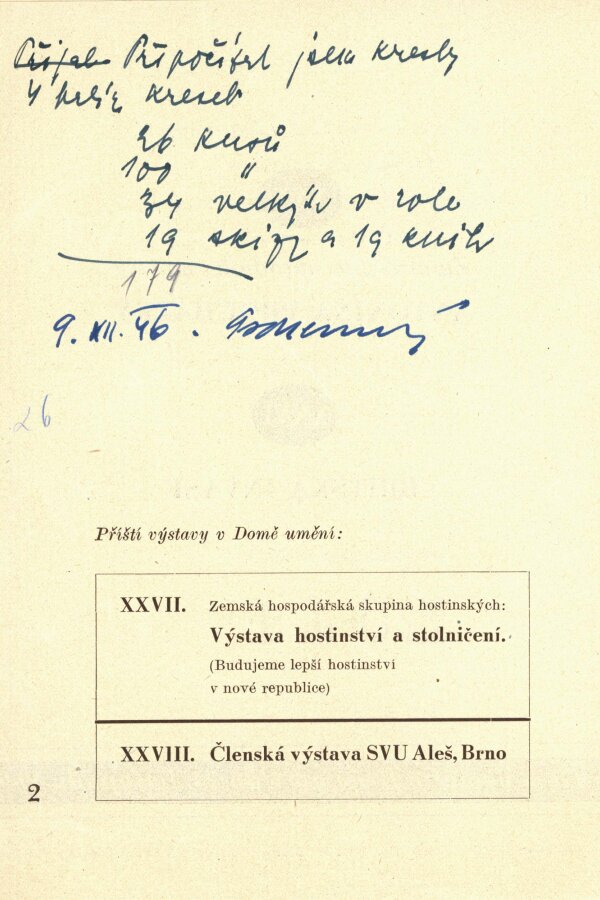 Připočítat jsem kresby
4 kreseb
26 kusů
100 "
34 velkých v role
19 skizz a 19 knih
179
9. XII. 46.
26
Příští výstavy v Domě umění:
XXVII. Zemská hospodářská skupina hostinských:
Výstava hostinství a stolničení.
(Budujeme lepší hostinství
v nové republice)
XXVIII. Členská výstava SVU Aleš, Brno
2